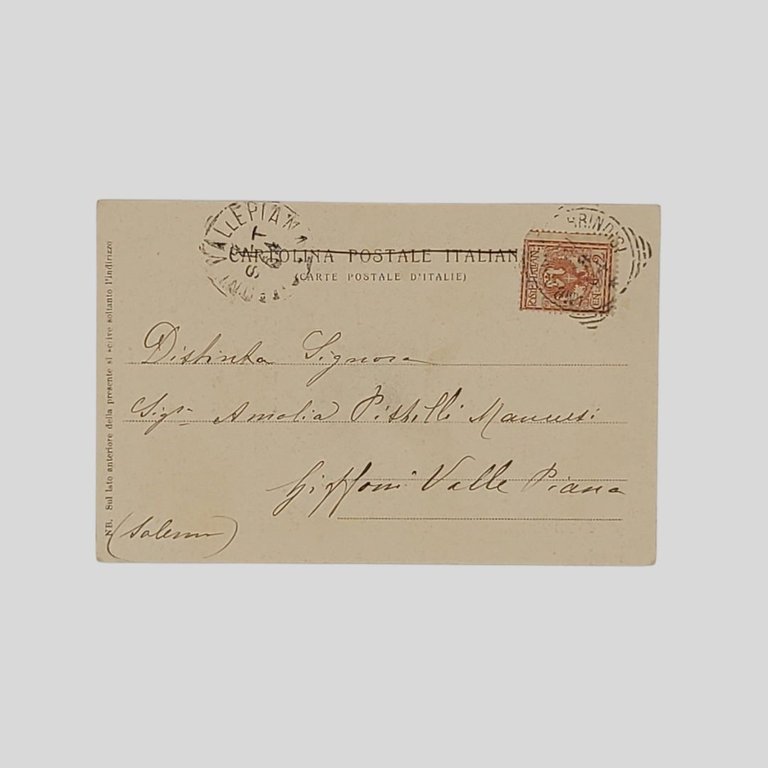 VALLEPIANA
BRINDISI
CARTOLINA POSTALE ITALIANA
(CARTE POSTALE D'ITALIE)
Distinta Signora
Sigra Amalia Pistilli Mancusi
Giffoni Valle Piana
(Salerno)
NB. Sul lato anteriore della presente si scrive soltanto l'indirizzo